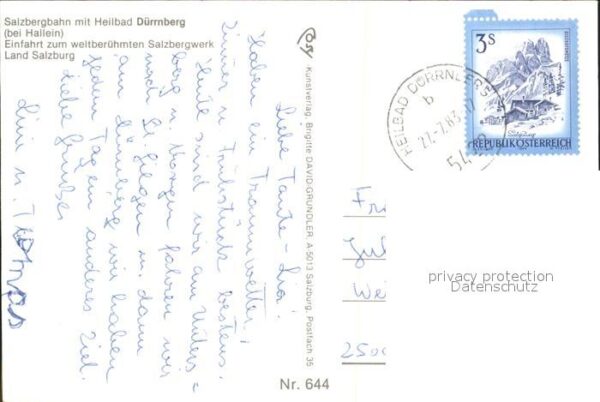 Salzbergbahn mit Heilbad Dürrnberg
(bei Hallein)
Einfahrt zum weltberühmten Salzbergwerk
Land Salzburg
Liebe Tante - Lisi!
Haben ein Traumwetter,
Zimmer u Frühstück bestens.
Heute sind wir am Unters=
berg u. Morgen fahren wir
nach St. Gilgen u. dann
am Dürrnberg wir haben
jeden Tag ein anderes Ziel.
Liebe Grüße
Lini u. Thomas
Kunstverlag, Brigitte DAVID-GRÜNDLER A-5013 Salzburg, Postfach 35
Nr. 644
3S
REPUBLIK ÖSTERREICH
HEILBAD DÜRRNBERG
b
27.7.83
Fr
Jul
We
250
privacy protection
Datenschutz